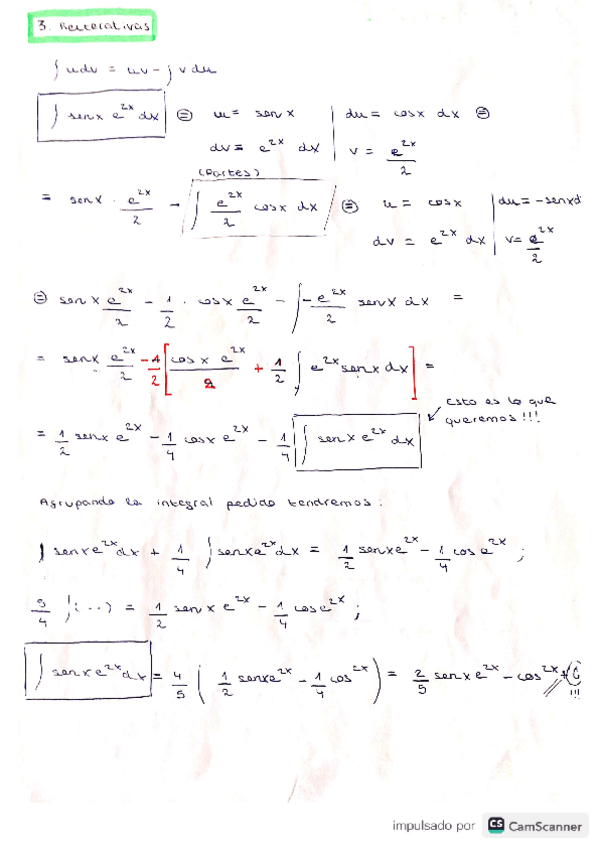 3. Reiterativas
∫ u dv = uv - ∫ v du
∫ senx e^2x dx ⊜ u = senx | du = cosx dx ⊜
dv = e^2x dx | v = e^2x/2
(Partes)
= senx · e^2x/2 - ∫ e^2x/2 cosx dx ⊜ u = cosx | du = -senxd
dv = e^2x dx | v = e^2x/2
⊜ senx e^2x/2 - 1/2 · cosx e^2x/2 - ∫ -e^2x/2 senx dx =
= senx e^2x/2 - 1/2 [cosx e^2x/2 + 1/2 ∫ e^2x senx dx] =
Esto es lo que
queremos!!!
= 1/2 senx e^2x - 1/4 cosx e^2x - 1/4 ∫ senx e^2x dx
Agrupando la integral pedida tendremos:
∫ senx e^2x dx + 1/4 ∫ senx e^2x dx = 1/2 senx e^2x - 1/4 cos e^2x ;
5/4 ∫(...) = 1/2 senx e^2x - 1/4 cos e^2x ;
∫ senx e^2x dx = 4/5 ( 1/2 senx e^2x - 1/4 cos^2x ) = 2/5 senx e^2x - cos^2x + C
!!!
impulsado por CS CamScanner